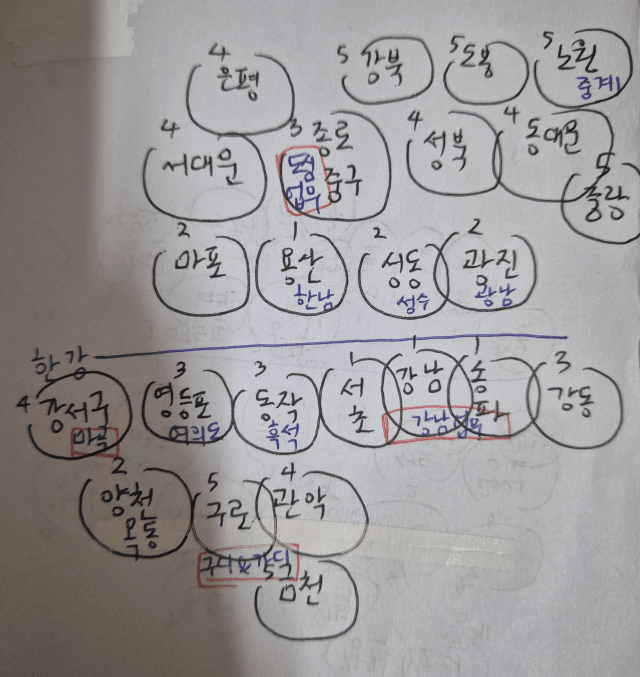 4 은평
5 강북
5 도봉
5 노원
중계
4 서대문
3 종로
도심
업무
중구
4 성북
4 동대문
5 중랑
2 마포
1 용산
한남
2 성동
성수
2 광진
광남
한강
4 강서구
마곡
3 영등포
여의도
3 동작
흑석
1 서초
1 강남
강남업무
1 송파
3 강동
2 양천
목동
5 구로
4 관악
구디&가디
5 금천